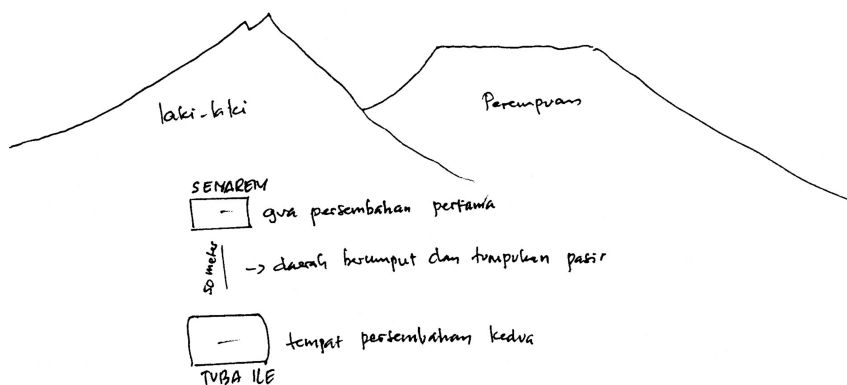 laki-laki
Perempuan
SEMAREM
gua persembahan pertama
50 meter
-> daerah berumput dan tumpukan pasir
tempat persembahan kedua
TUBA ILE